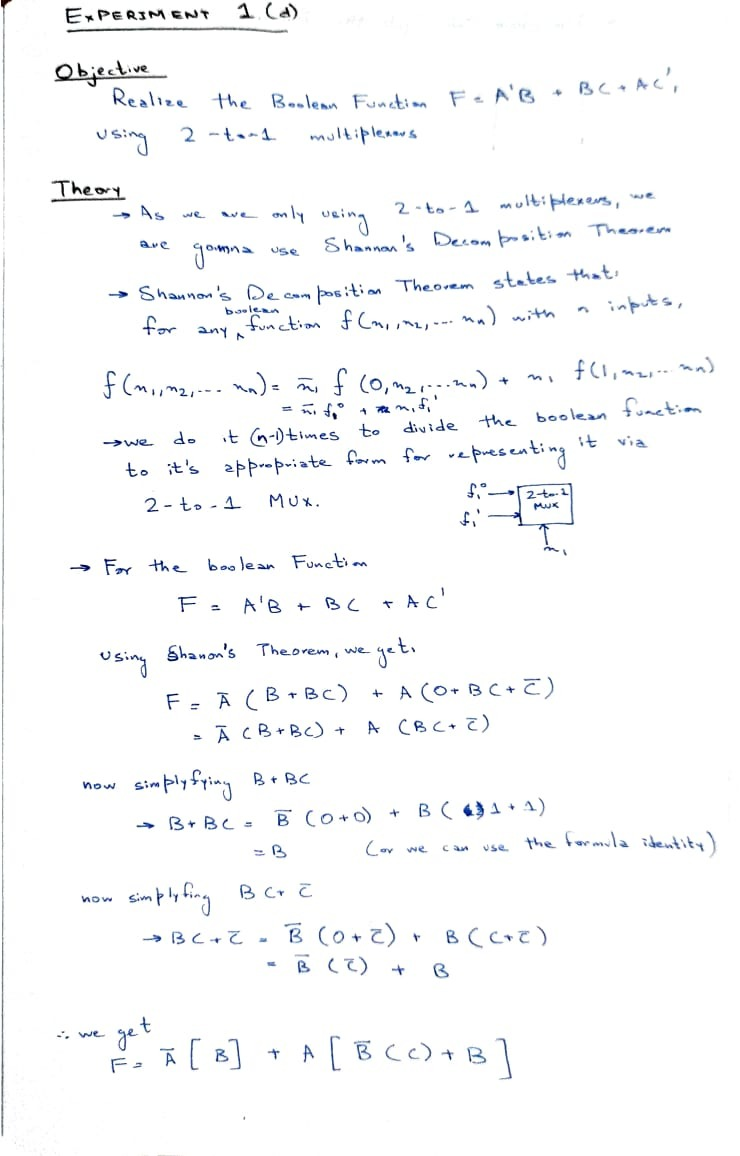 EXPERIMENT 1.(d)
Objective
Realize the Boolean Function F = A'B + BC + AC',
using 2-to-1 multiplexers
Theory
→ As we are only using 2-to-1 multiplexers, we
are gonna use Shannon's Decomposition Theorem
→ Shannon's Decomposition Theorem states that:
boolean
for any ^ function f(x₁, x₂, --- xₙ) with n inputs,
f(x₁, x₂, --- xₙ) = x̄₁ f (0, x₂, --- xₙ) + x₁ f(1, x₂, -- xₙ)
= x̄₁ f₁⁰ + x₁ f₁¹
→ we do it (n-1) times to divide the boolean function
to it's appropriate form for representing it via
2-to-1 MUX.
f₁⁰ → 2-to-1
f₁¹ → MUX
x₁
→ For the boolean Function
F = A'B + BC + AC'
using Shanon's Theorem, we get.
F = Ā (B + BC) + A (0 + BC + C̄)
= Ā (B + BC) + A (BC + C̄)
now simplyfying B + BC
→ B + BC = B̄ (0+0) + B ( 1 + 1)
= B (or we can use the formula identity)
now simplyfing BC + C̄
→ BC + C̄ = B̄ (0 + C̄) + B (C + C̄)
= B̄ (C̄) + B
∴ we get
F = Ā [B] + A [B̄ (C) + B]